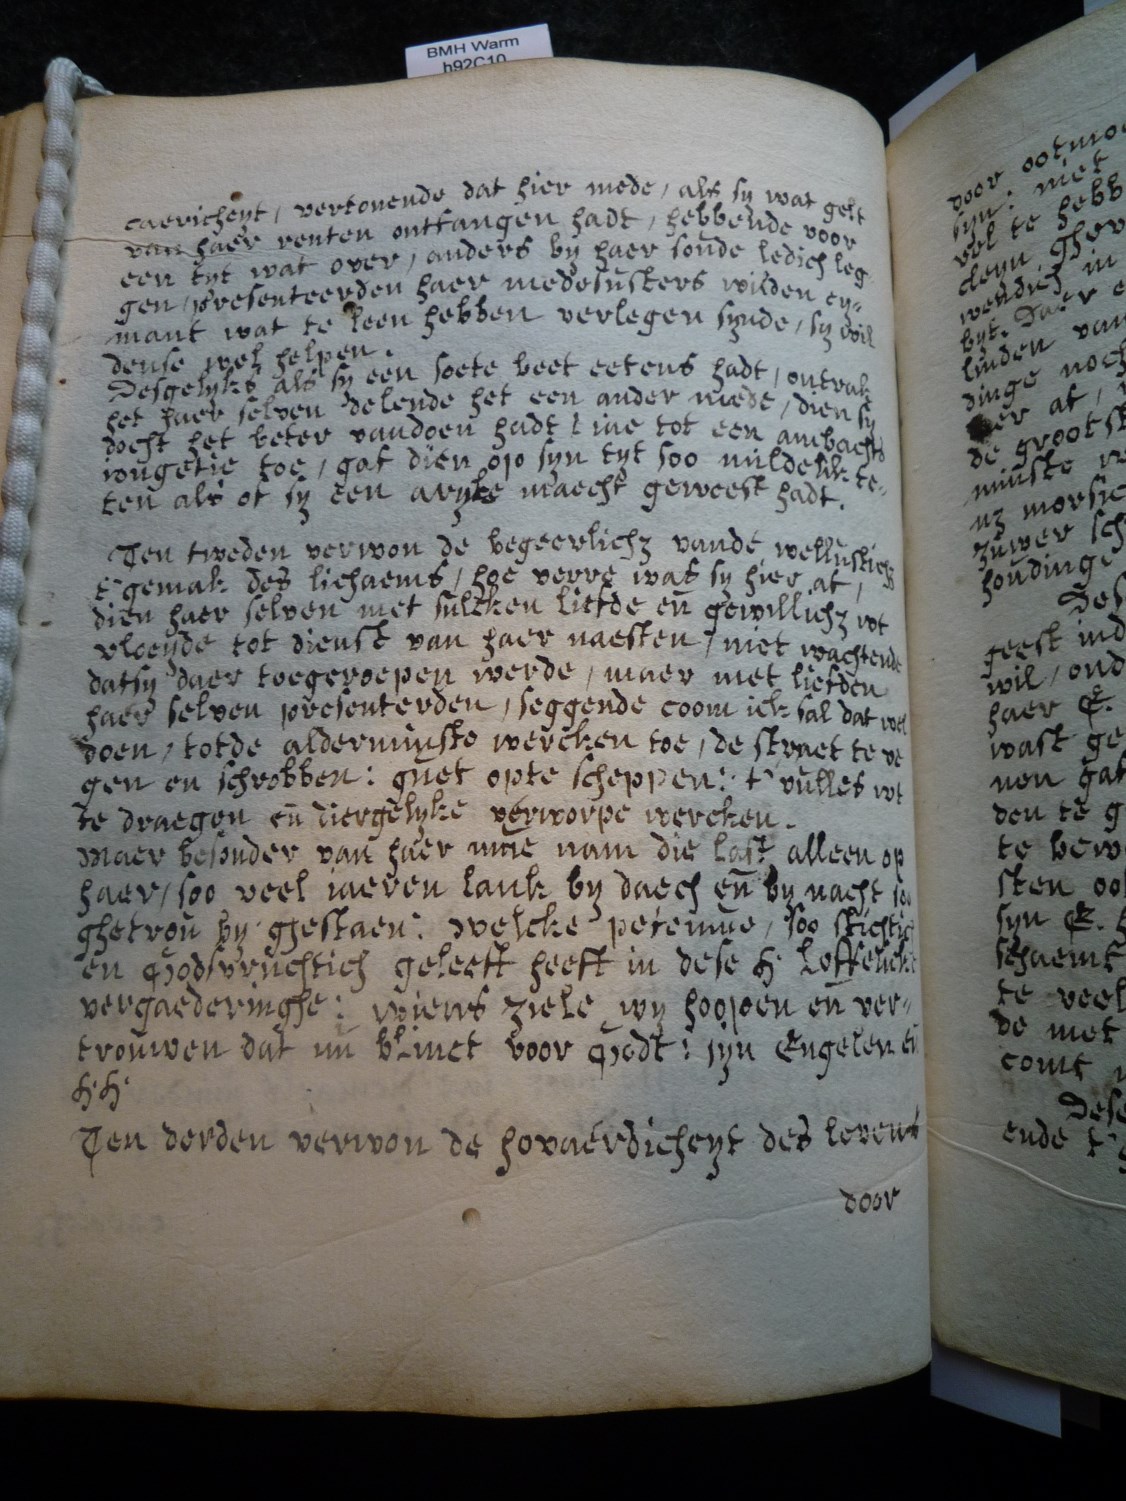 BMH Warm
h92C10
caericheyt, vertonende dat hier mede, als sy wat gelt
van haer renten ontfangen hadt, hebbende voor
een tyt wat over, anders by haer soude ledich leg
gen, presenteerden haer medesusters wilden ey-
mant wat te leen hebben verlegen synde, sy wil
dense wel helpen.
Desgelyks als sy een soete beet eetens hadt, ontrak
het haer selven delende het een ander mede, dien sy
docht het beter vandoen hadt: iae tot een ambachts
iongetie toe, gaf dien op syn tyt soo mildelik te-
ten als of sy een aryke maecht geweest hadt.
Ten tweden verwon de begeerlichz vande wellustich
t'gemak des lichaems, hoe verre was sy hier af,
dien haer selven met sulcken liefde en̄ gewillichz wt
vloeyde tot dienst van haer naesten, niet wachtende
datsy daer toegeroepen werde, maer met liefden
haer selven presenterden, seggende coom ick sal dat wel
doen, totde alderminste wercken toe, de straet te ve
gen en schrobben: guet opte scheppen: t'vulles wt
te draegen en̄ diergelyke verworpe wercken.
Maer besonder van haer nam die last alleen op
haer, soo veel iaeren lank by daech en̄ by nacht soo
ghetrou by gestaen: Welcke petemue, soo stichtich
en Godsvruchtich geleeft heeft in dese H. Loffelicke
vergaederinghe: wiens ziele wy hoopen en ver-
trouwen dat nu blinct voor Godt: syn Engelen en̄
HH.
Ten derden verwon de hovaerdicheyt des levens
door
door ootmoe
syn: niet
vel te hebb
cleyn
wendich in
byt. Daer
linden van
dinge noch
at,
de grootst
minste
morsie
zuwer sch
houdinge
Des
geest ind
wil, ond
haer E.
wast ge
non gaf
den te g
te bew
sten oo
syn E.
schaemt
te veel
de met
comt
Dese
ende t'